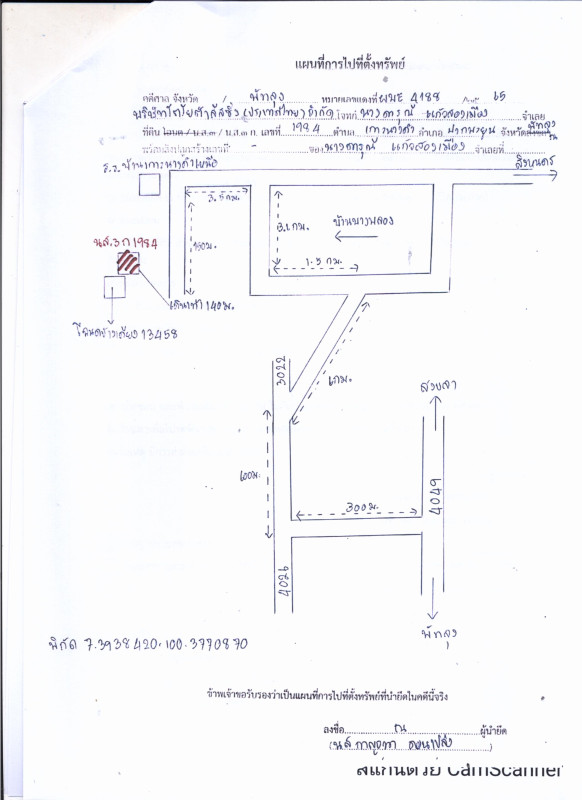 แผนที่การไปที่ตั้งทรัพย์
คดีศาล จังหวัด / พัทลุง หมายเลขแดงที่ ผบE 4188 / 65
บริษัทโตโยต้าลีสซิ่ง (ประเทศไทย) จำกัด โจทก์ นางดารุณี แก้วสองเมือง จำเลย
ที่ดิน โฉนด / น.ส.๓ / น.ส.๓ ก. เลขที่ 1984 ตำบล เกาะนางคำ อำเภอ ปากพะยูน จังหวัด พัทลุง
พร้อมสิ่งปลูกสร้างเลขที่ - ของ นางดารุณี แก้วสองเมือง จำเลยที่
ร.ร. บ้านเกาะนางคำเหนือ
สิงหนคร
3.5 กม.
950ม.
3.1 กม.
บ้านบางพลอง
1.5 กม.
นส.3 ก 1984
เดินเท้า 140ม.
โฉนดข้างเคียง 13458
3022
1 กม.
สงขลา
600ม.
300ม.
4049
4026
พัทลุง
พิกัด 7.3938420,100.3770870
ข้าพเจ้าขอรับรองว่าเป็นแผนที่การไปที่ตั้งทรัพย์ที่นำยึดในคดีนี้จริง
ลงชื่อ ผู้นำยึด
สแกนด้วย CamScanner